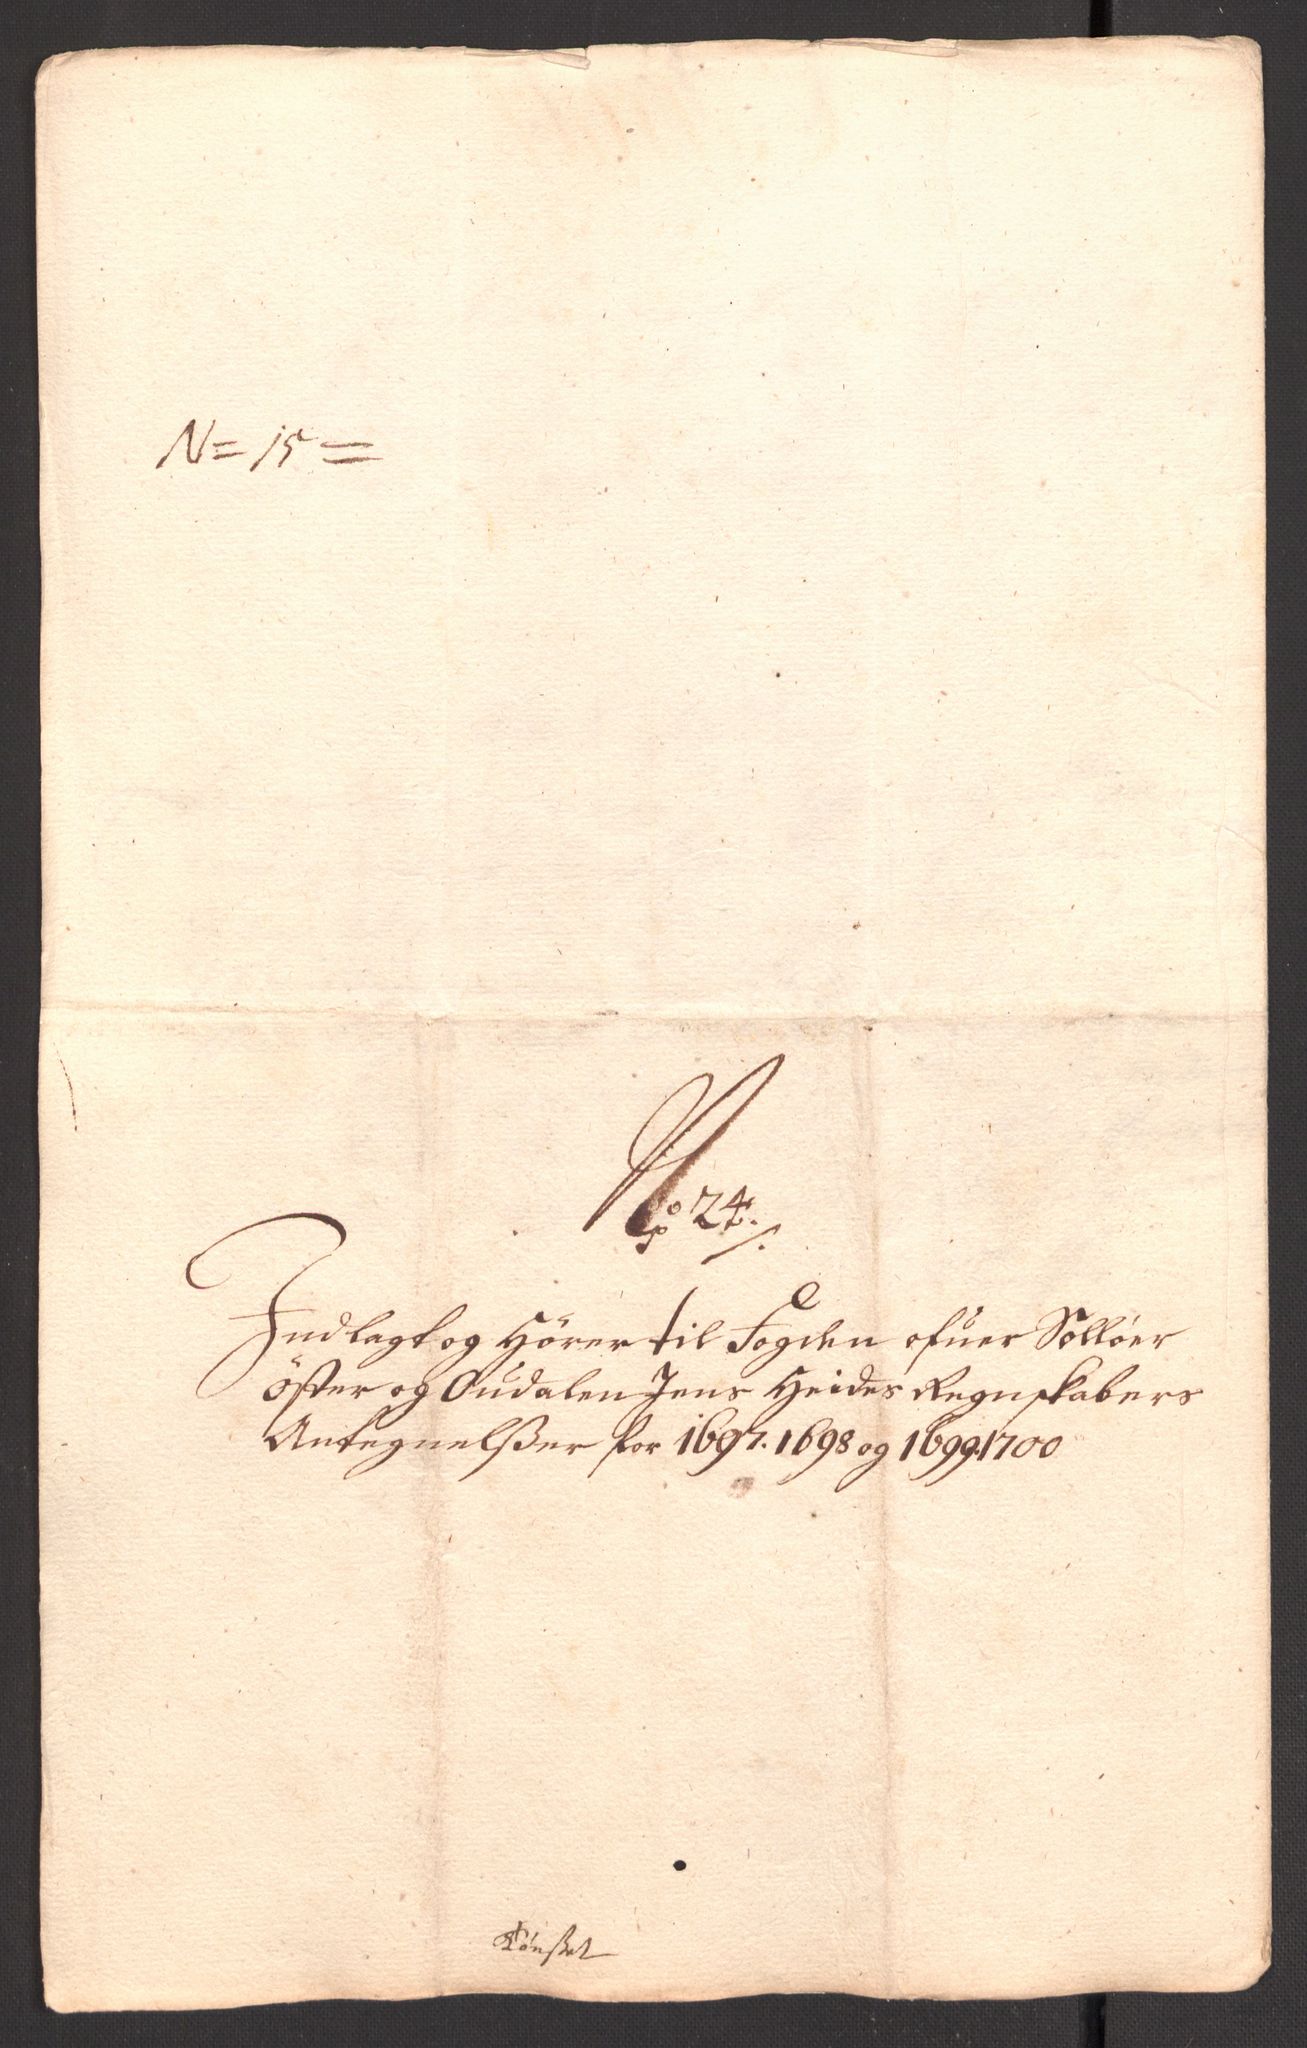 N= 15=
No 24.
Indlagt og Hörer til Fogden ofuer Sollöer
öster og Oudalen Jens Heides Regnskabers
Antegnelßer for 1697. 1698 og 1699. 1700